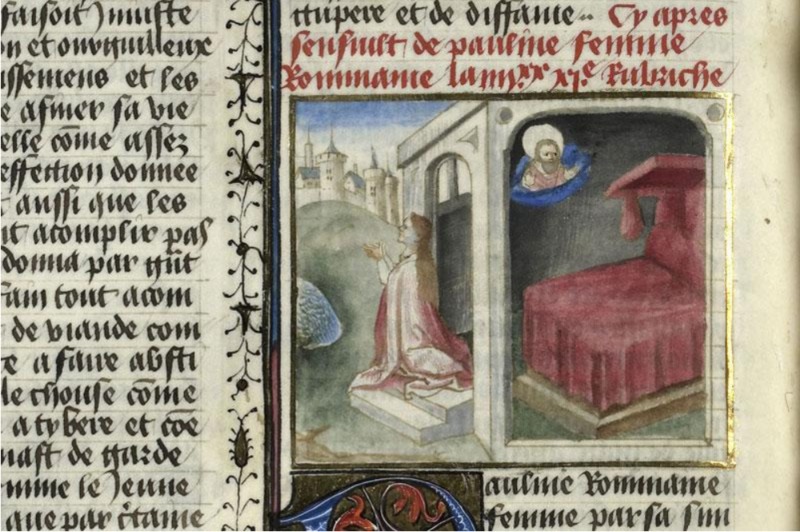 faisoit) iniuste
on et orguilleux
issemens et les
e asmer sa vie
elle cōme assez
effection donnee
t aussi que les
it acomplir pas
donna par gūt
fain tout acom
de viande com
te a faire absti
le chouse cōme
a tybere et cōe
nast de garde
mme le jeune
que par c̄tame
ttupere et de diffame·· Cy apres
sensuilt de pauline femme
Rommaine la iiii.xx xi.e Rubriche
auline Rommaine
femme par sa sim